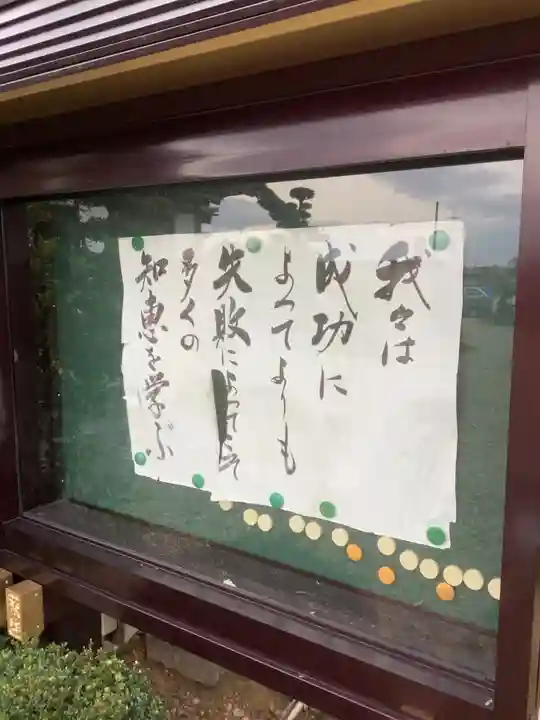 我々は
成功に
よってよりも
失敗によって
多くの
知恵を学ぶ